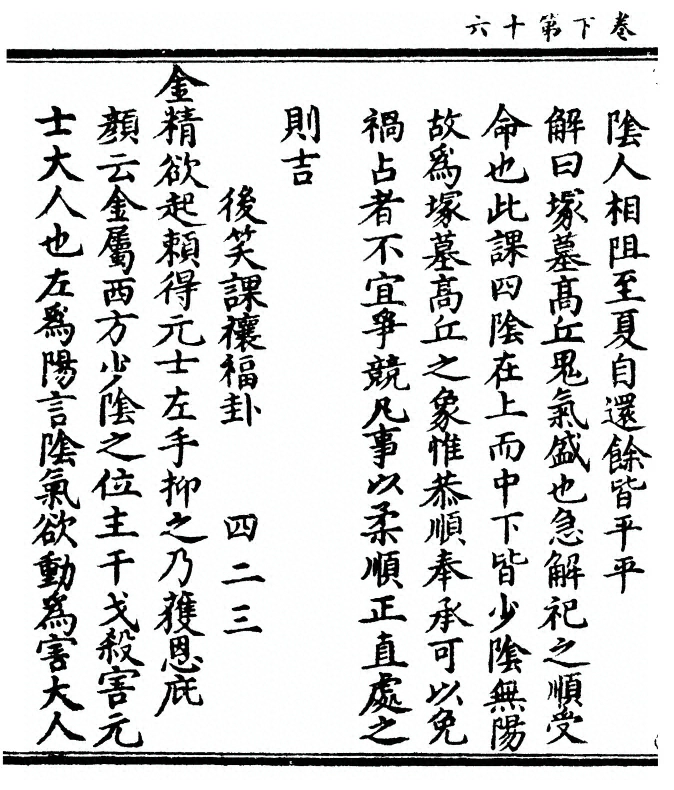 卷下第十六
陰人相阻至夏自還餘皆平平
解曰塚墓髙丘鬼氣盛也急解祀之順受
命也此課四陰在上而中下皆少陰無陽
故爲塚墓髙丘之象惟恭順奉承可以免
禍占者不宜爭競凡事以柔順正直處之
則吉
後笑課禳福卦 四二三
金精欲起賴得元士左手抑之乃獲恩庇
顏云金屬西方少陰之位主干戈殺害元
士大人也左爲陽言陰氣欲動爲害大人